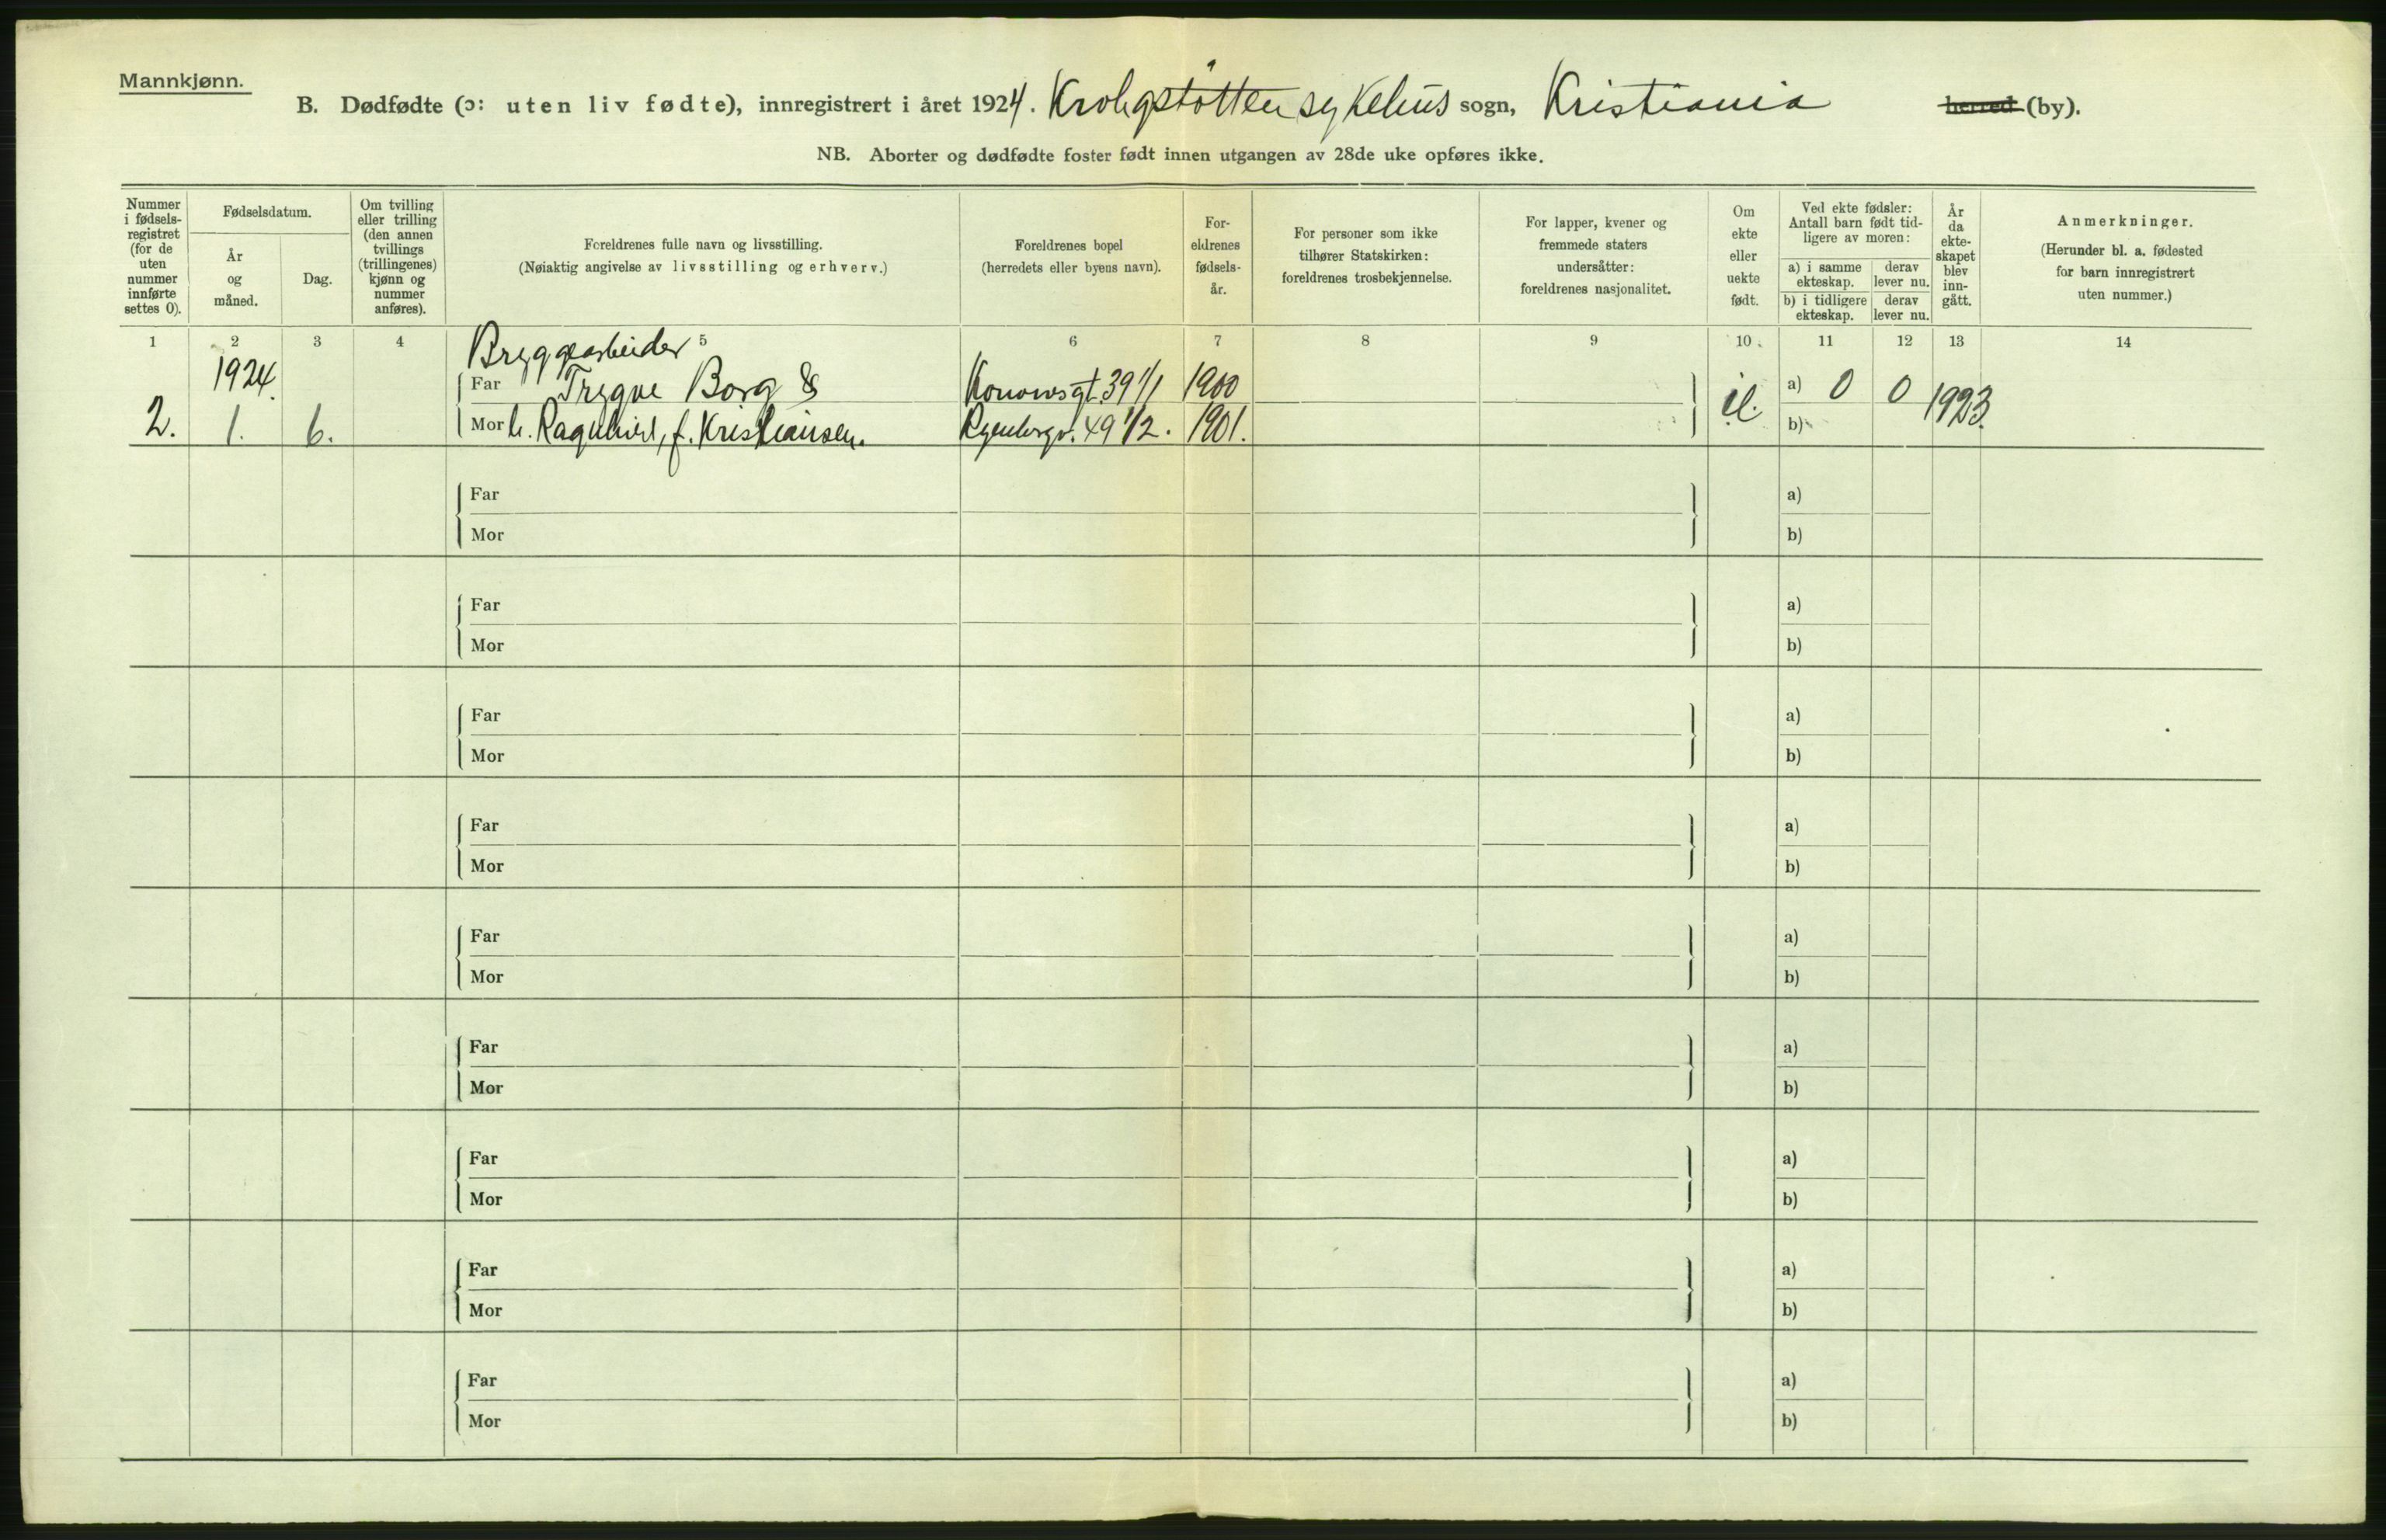 Mannkjønn.
B. Dødfødte (ɔ: uten liv fødte), innregistrert i året 1924. Krohgstøtten sykehus sogn, Kristiania herred (by).
NB. Aborter og dødfødte foster født innen utgangen av 28de uke opføres ikke.
Nummer i fødsels-registret (for de uten nummer innførte settes 0).
Fødselsdatum.
År og måned.
Dag.
Om tvilling eller trilling (den annen tvillings (trillingenes) kjønn og nummer anføres).
Foreldrenes fulle navn og livsstilling.
(Nøiaktig angivelse av livsstilling og erhverv.)
Foreldrenes bopel
(herredets eller byens navn).
For-eldrenes fødsels-år.
For personer som ikke tilhører Statskirken: foreldrenes trosbekjennelse.
For lapper, kvener og fremmede staters undersåtter: foreldrenes nasjonalitet.
Om ekte eller uekte født.
Ved ekte fødsler: Antall barn født tid-ligere av moren:
a) i samme ekteskap.
derav lever nu.
b) i tidligere ekteskap.
derav lever nu.
År da ekte-skapet blev inn-gått.
Anmerkninger.
(Herunder bl. a. fødested for barn innregistrert uten nummer.)
1 2 3 4 5 6 7 8 9 10 11 12 13 14
Bryggearbeider
1924. Far Trygve Borg & Konowsgt. 39 1/1 1900 a) 0 0 1923.
2. 1. 6. Mor h. Ragnhild, f. Kristiansen. 49 1/2. 1901. b)
Far a)
Mor b)
Far a)
Mor b)
Far a)
Mor b)
Far a)
Mor b)
Far a)
Mor b)
Far a)
Mor b)
Far a)
Mor b)
Far a)
Mor b)
Far a)
Mor b)